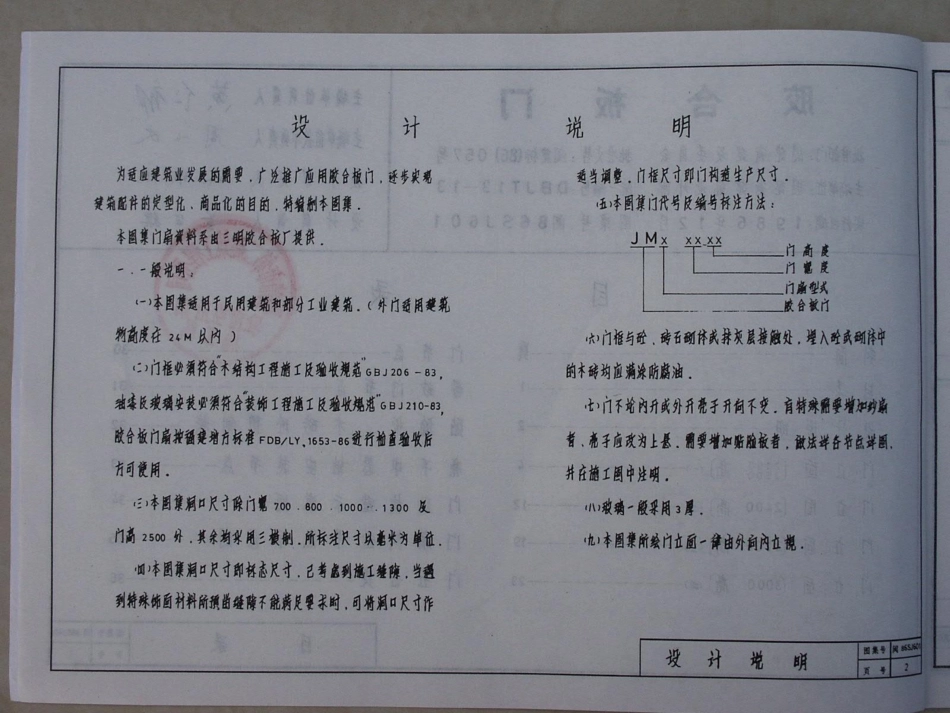 设 计 说 明
为适应建筑业发展的需要，广泛推广应用胶合板门，逐步实现
建筑配件的定型化、商品化的目的，特编制本图集。
本图集门扇资料系由三明胶合板厂提供。
一．一般说明：
(一)本图集适用于民用建筑和部分工业建筑。（外门适用建筑
物高度在 24M 以内）
(二)门框必须符合“木结构工程施工及验收规范”GBJ206-83，
油漆及玻璃安装必须符合“装饰工程施工及验收规范”GBJ210-83，
胶合板门扇按福建地方标准 FDB/LY.1653-86进行检查验收后
方可使用。
(三)本图集洞口尺寸除门宽 700．800．1000．．1300 及
门高 2500 外，其余均采用三模制，所标注尺寸以毫米为单位。
(四)本图集洞口尺寸即标志尺寸，已考虑到施工缝隙，当遇
到特殊饰面材料所预留缝隙不能满足要求时，可将洞口尺寸作
适当调整，门框尺寸即门构造生产尺寸。
(五)本图集门代号及编号标注方法：
JMx xx.xx
门高度
门宽度
门扇型式
胶合板门
(六)门框与砼、砖石砌体或抹灰层接触处，埋入砼或砌体中
的木砖均应满涂防腐油。
(七)门不论内开或外开亮子开向不变，有特殊需要增加纱扇
者，亮子应改为上悬，需要增加贴脸板者，做法详各节点详图，
并在施工图中注明。
(八)玻璃一般采用 3 厚。
(九)本图集所绘门立面一律由外向内立视。
设计说明
图集号 闽 86SJ601
页 号 2